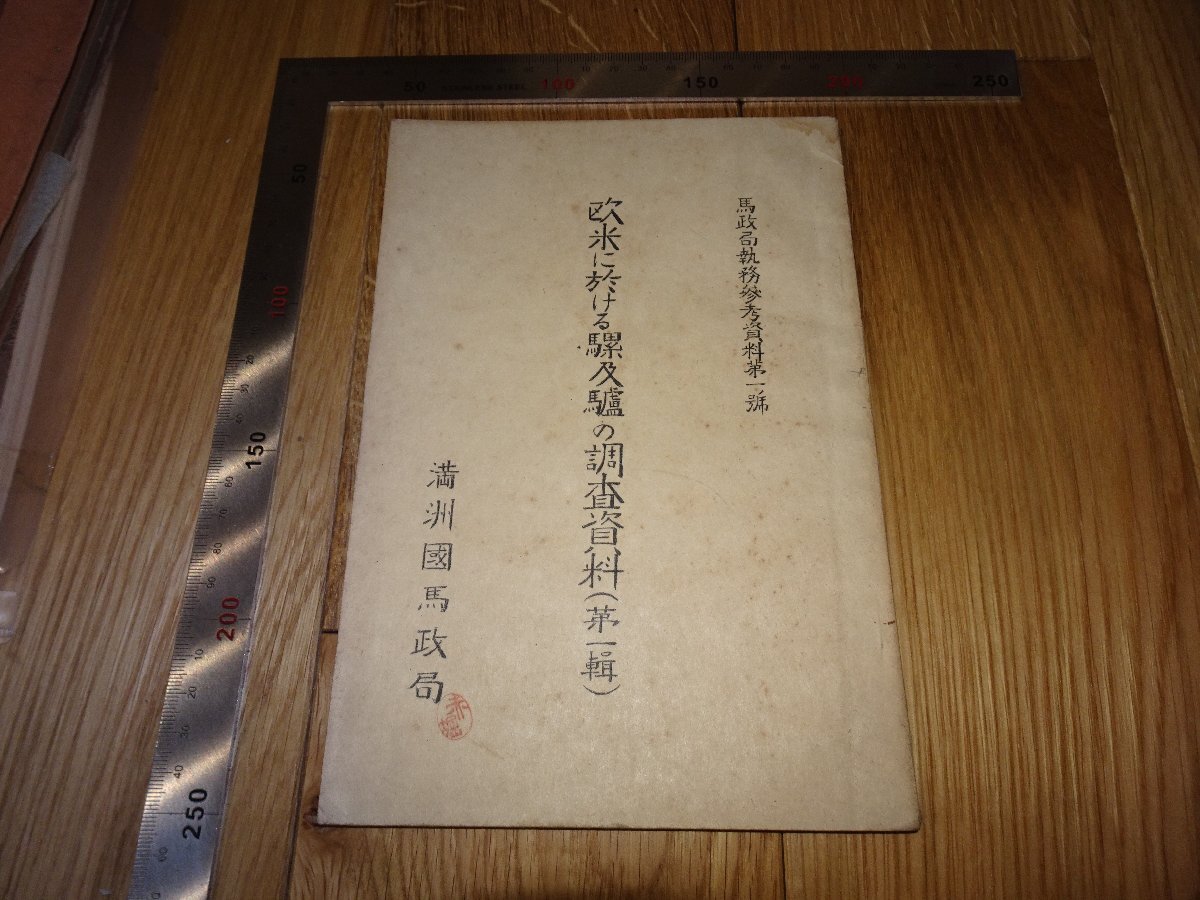 馬政局執務參考資料第一號
欧米に於ける騾及驢の調査資料(第一輯)
満洲國馬政局
50 STAINLESS STEEL 100 150 200 250
50
100
150
200
250